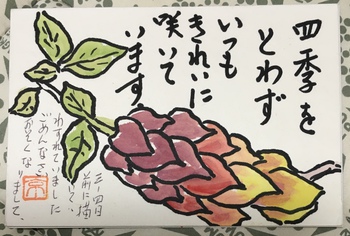 四季を
とわず
いつも
きれいに
咲いて
います
三-四日
前に描
いて、
わすれていました
ごめんなさい
おそくなりまして、